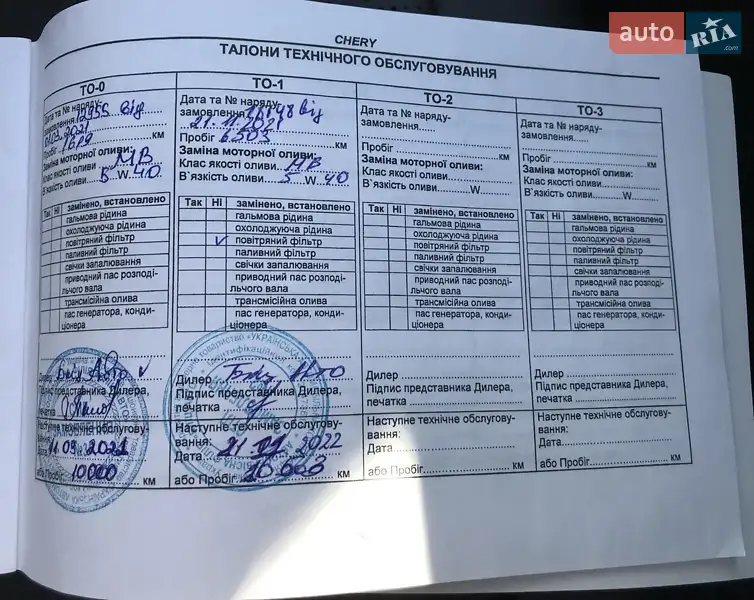 auto RIA .com
CHERY
ТАЛОНИ ТЕХНІЧНОГО ОБСЛУГОВУВАННЯ
ТО-0
Дата та № наряду-
замовлення 12955 від
2021
Пробіг 1689 км
Заміна моторної оливи:
Клас якості оливи МВ
В`язкість оливи 5 W 40
Так Ні замінено, встановлено
гальмова рідина
охолоджуюча рідина
повітряний фільтр
паливний фільтр
свічки запалювання
приводний пас розподі-
льчого вала
трансмісійна олива
пас генератора, конди-
ціонера
Дилер Авто
Підпис представника Дилера,
печатка
Наступне технічне обслугову-
вання:
Дата 11 09 2021
або Пробіг 10000 км
ТО-1
Дата та № наряду-
замовлення від
21.11.2021
Пробіг 6505 км
Заміна моторної оливи:
Клас якості оливи МВ
В`язкість оливи 5 W 40
Так Ні замінено, встановлено
гальмова рідина
охолоджуюча рідина
повітряний фільтр
паливний фільтр
свічки запалювання
приводний пас розподі-
льчого вала
трансмісійна олива
пас генератора, конди-
ціонера
Дилер
Підпис представника Дилера,
печатка
Наступне технічне обслугову-
вання:
Дата 21 2022
або Пробіг км
ТО-2
Дата та № наряду-
замовлення
Пробіг км
Заміна моторної оливи:
Клас якості оливи
В`язкість оливи W
Так Ні замінено, встановлено
гальмова рідина
охолоджуюча рідина
повітряний фільтр
паливний фільтр
свічки запалювання
приводний пас розподі-
льчого вала
трансмісійна олива
пас генератора, конди-
ціонера
Дилер
Підпис представника Дилера,
печатка
Наступне технічне обслугову-
вання:
Дата
або Пробіг км
ТО-3
Дата та № наряду-
замовлення
Пробіг км
Заміна моторної оливи:
Клас якості оливи
В`язкість оливи W
Так Ні замінено, встановлено
гальмова рідина
охолоджуюча рідина
повітряний фільтр
паливний фільтр
свічки запалювання
приводний пас розподі-
льчого вала
трансмісійна олива
пас генератора, конди-
ціонера
Дилер
Підпис представника Дилера,
печатка
Наступне технічне обслугову-
вання:
Дата
або Пробіг км